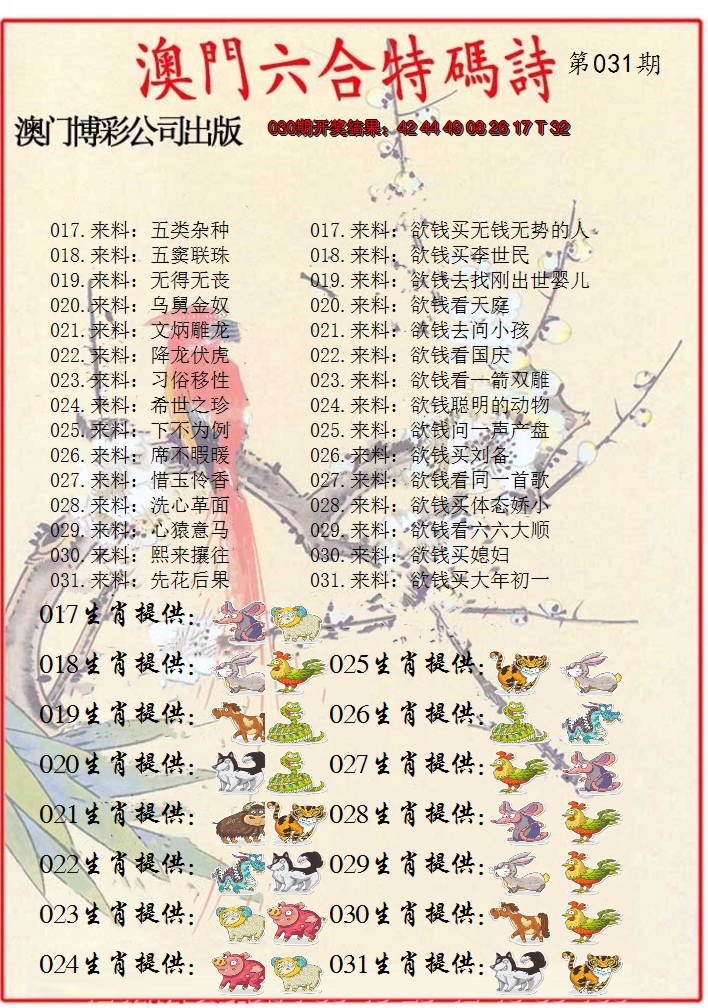 澳門六合特碼詩 第031期
澳门博彩公司出版 030期开奖结果：42 44 49 08 26 17 T 32
017.来料：五类杂种 017.来料：欲钱买无钱无势的人
018.来料：五窦联珠 018.来料：欲钱买李世民
019.来料：无得无丧 019.来料：欲钱去找刚出世婴儿
020.来料：乌舅金奴 020.来料：欲钱看天庭
021.来料：文炳雕龙 021.来料：欲钱去问小孩
022.来料：降龙伏虎 022.来料：欲钱看国庆
023.来料：习俗移性 023.来料：欲钱看一箭双雕
024.来料：希世之珍 024.来料：欲钱聪明的动物
025.来料：下不为例 025.来料：欲钱问一声产盘
026.来料：席不暇暖 026.来料：欲钱买刘备
027.来料：惜玉怜香 027.来料：欲钱看同一首歌
028.来料：洗心革面 028.来料：欲钱买体态娇小
029.来料：心猿意马 029.来料：欲钱看六六大顺
030.来料：熙来攘往 030.来料：欲钱买媳妇
031.来料：先花后果 031.来料：欲钱买大年初一
017生肖提供：
018生肖提供： 025生肖提供：
019生肖提供： 026生肖提供：
020生肖提供： 027生肖提供：
021生肖提供： 028生肖提供：
022生肖提供： 029生肖提供：
023生肖提供： 030生肖提供：
024生肖提供： 031生肖提供：